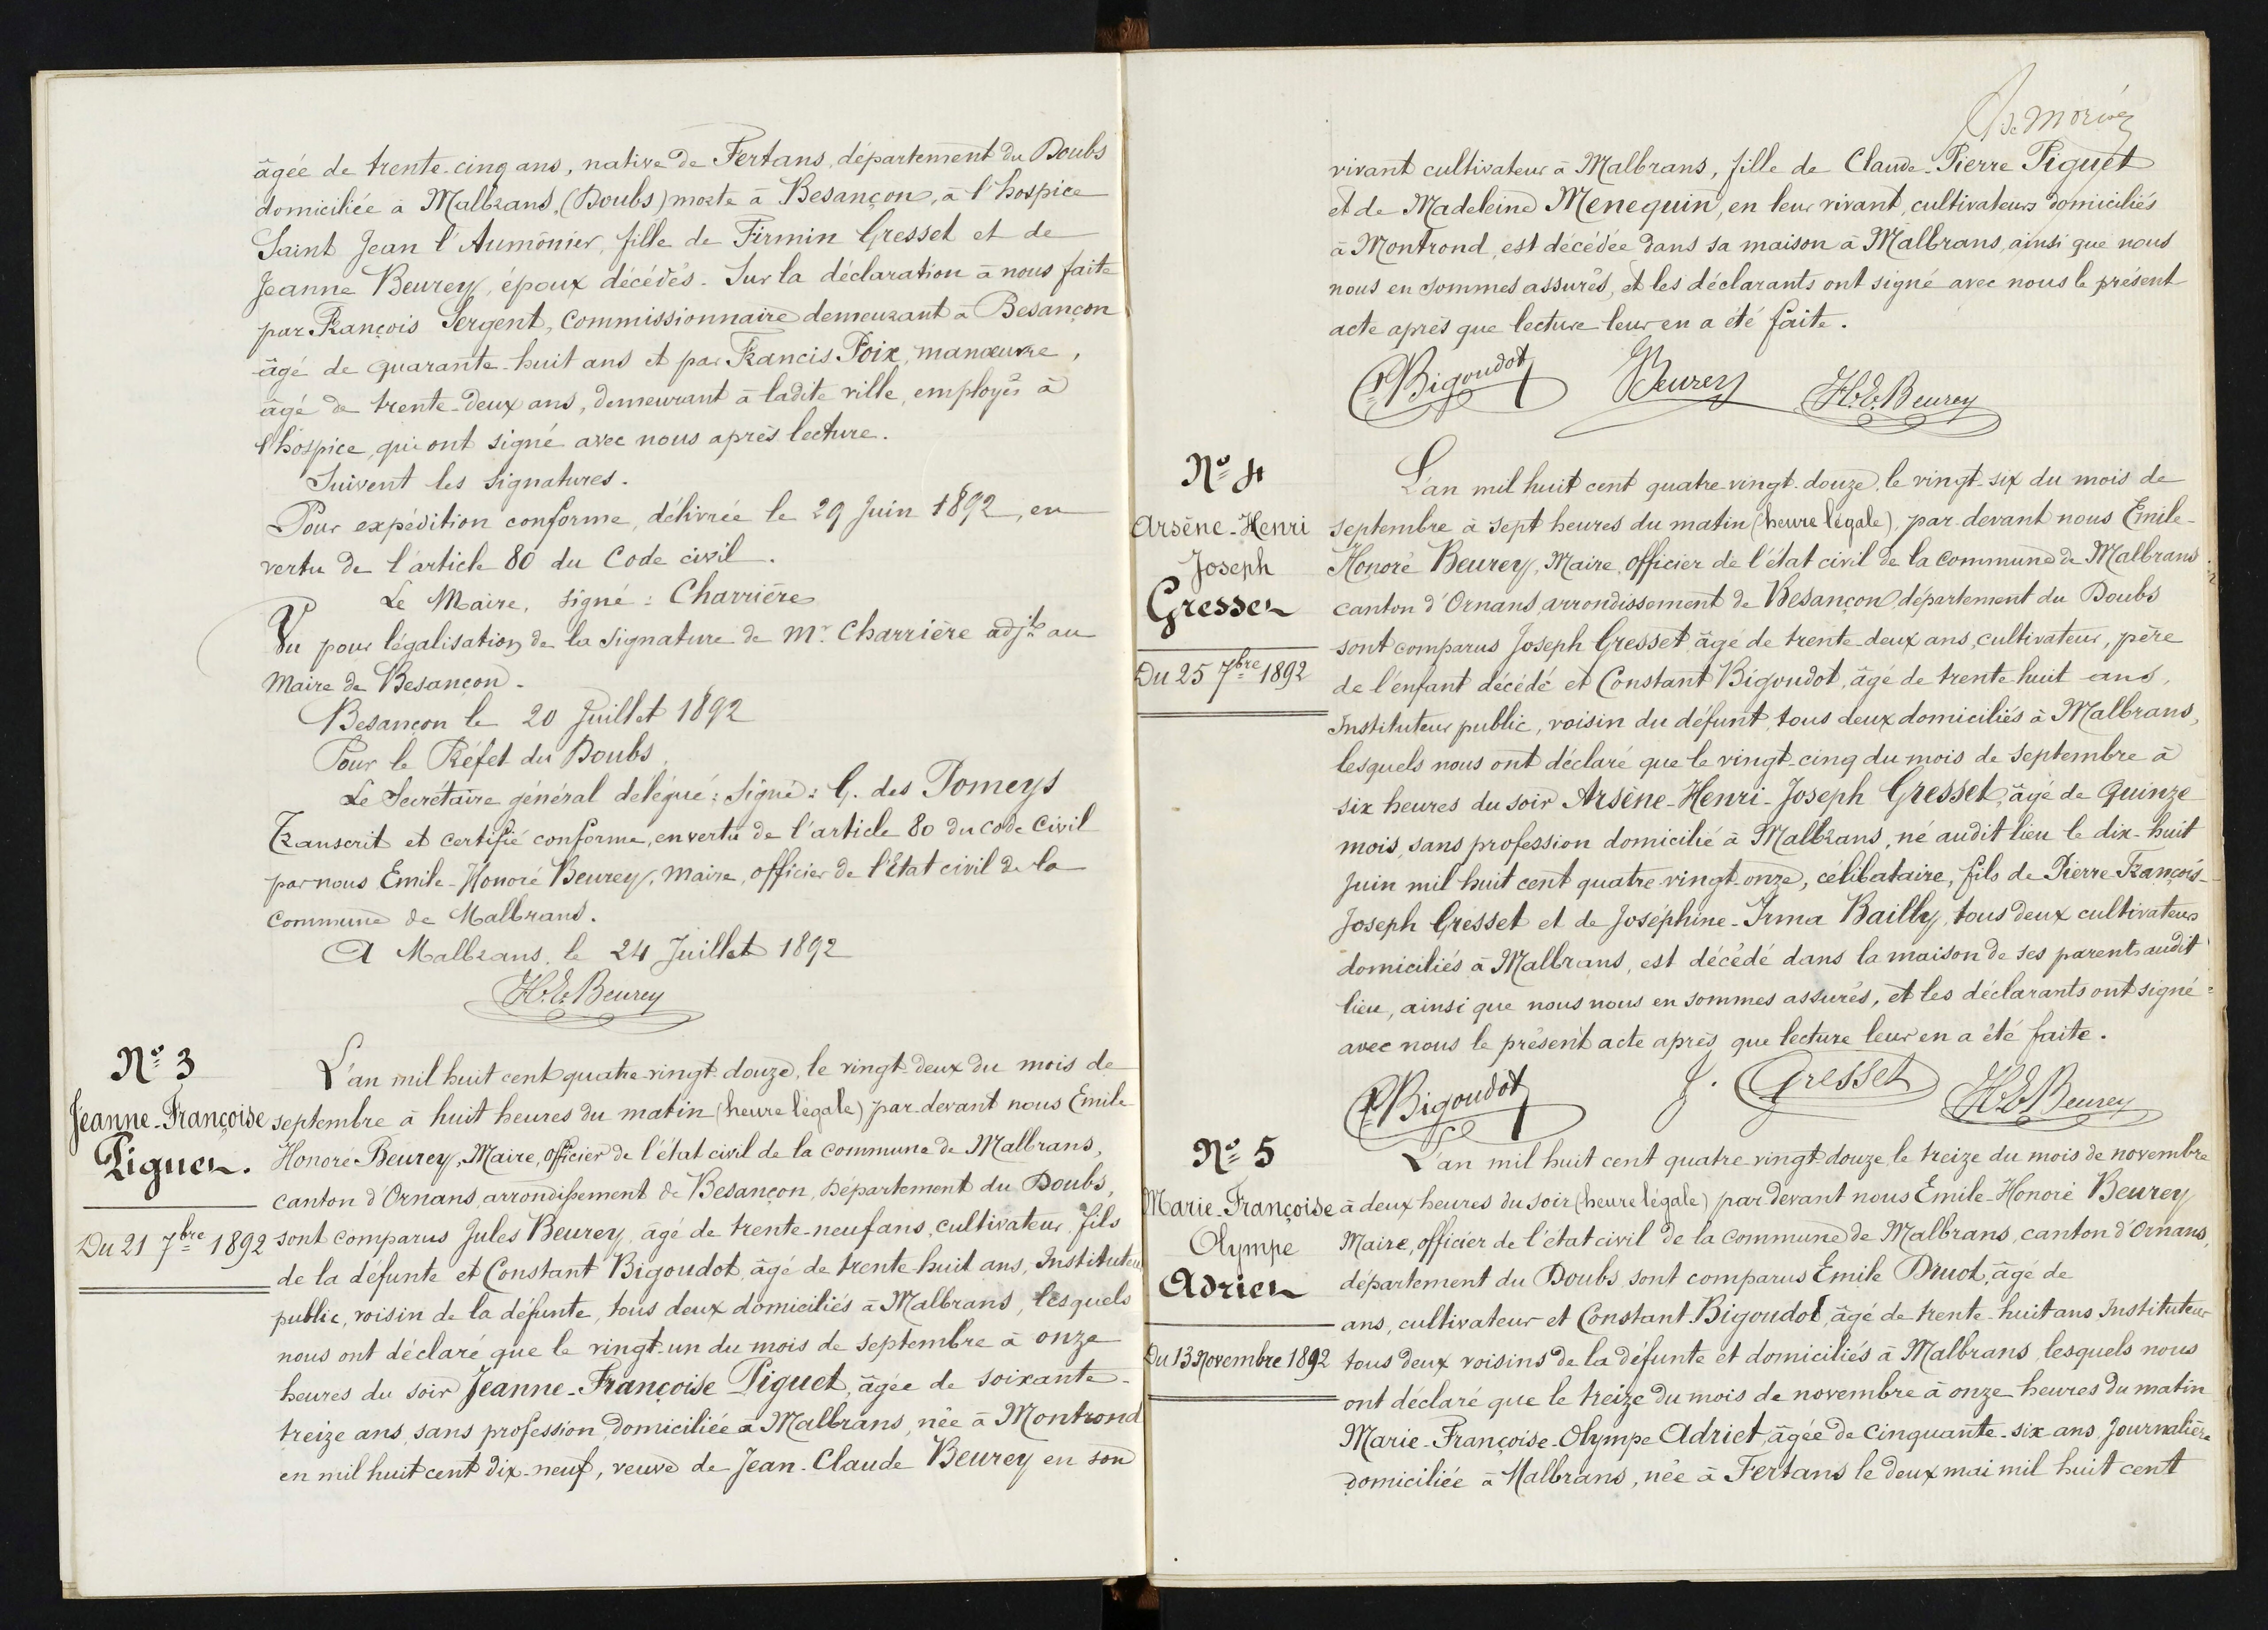 âgée de trente-cinq ans, native de Fertans, département du Doubs
domiciliée à Malbrans, (Doubs) morte à Besançon, à l'hospice
Saint Jean l'Aumônier, fille de Firmin Gresset et de
Jeanne Beurey, époux décédés. Sur la déclaration à nous faite
par François Sergent, Commissionnaire demeurant à Besançon
âgé de quarante-huit ans et par Francis Poix, manœuvre,
âgé de trente-deux ans, demeurant à ladite ville, employés à
l'hospice, qui ont signé avec nous après lecture.
Suivent les signatures.
Pour expédition conforme, délivrée le 29 Juin 1892, en
vertu de l'article 80 du Code civil.
Le Maire, signé : Charrière
Vu pour légalisation de la signature de Mr. Charrière adjt au
Maire de Besançon.
Besançon le 20 Juillet 1892
Pour le Préfet du Doubs,
Le Secrétaire général délégué : Signé : G. des Pomeys
Transcrit et certifié conforme, en vertu de l'article 80 du Code Civil
par nous Emile-Honoré Beurey, Maire, officier de l'Etat civil de la
Commune de Malbrans.
A Malbrans, le 24 Juillet 1892
H. E. Beurey
No 3
Jeanne-Françoise
Piguet.
Du 21 7bre 1892
L'an mil huit cent quatre-vingt-douze, le vingt-deux du mois de
septembre à huit heures du matin (heure légale) par-devant nous Emile
Honoré Beurey, Maire, officier de l'état civil de la commune de Malbrans,
canton d'Ornans, arrondissement de Besançon, Département du Doubs,
sont comparus Jules Beurey, âgé de trente-neuf ans, cultivateur, fils
de la défunte et Constant Bigoudot, âgé de trente-huit ans, Instituteur
public, voisin de la défunte, tous deux domiciliés à Malbrans, lesquels
nous ont déclaré que le vingt-un du mois de septembre à onze
heures du soir Jeanne-Françoise Piguet, âgée de soixante-
treize ans, sans profession, domiciliée à Malbrans, née à Montrond
en mil huit cent dix-neuf, veuve de Jean-Claude Beurey en son
vivant cultivateur à Malbrans, fille de Claude-Pierre Piguet
et de Madeleine Menequin, en leur vivant, cultivateurs domiciliés
à Montrond, est décédée dans sa maison à Malbrans, ainsi que nous
nous en sommes assurés, et les déclarants ont signé avec nous le présent
acte après que lecture leur en a été faite.
C. Bigoudot Beurey H. E. Beurey
No 4
Arsène-Henri
Joseph
Gresset
Du 25 7bre 1892
L'an mil huit cent quatre-vingt-douze, le vingt-six du mois de
septembre à sept heures du matin (heure légale), par-devant nous Emile-
Honoré Beurey, Maire, officier de l'état civil de la commune de Malbrans
canton d'Ornans, arrondissement de Besançon, département du Doubs
sont comparus Joseph Gresset, âgé de trente-deux ans, cultivateur, père
de l'enfant décédé et Constant Bigoudot, âgé de trente-huit ans,
Instituteur public, voisin du défunt, tous deux domiciliés à Malbrans,
lesquels nous ont déclaré que le vingt-cinq du mois de septembre à
six heures du soir Arsène-Henri-Joseph Gresset, âgé de quinze
mois, sans profession domicilié à Malbrans, né audit lieu le dix-huit
Juin mil huit cent quatre-vingt-onze, célibataire, fils de Pierre-François-
Joseph Gresset et de Joséphine-Irma Bailly, tous deux cultivateurs
domiciliés à Malbrans, est décédé dans la maison de ses parents audit
lieu, ainsi que nous nous en sommes assurés, et les déclarants ont signé
avec nous le présent acte après que lecture leur en a été faite.
C. Bigoudot J. Gresset H. E. Beurey
No 5
Marie-Françoise
Olympe
Adriet
Du 13 Novembre 1892
L'an mil huit cent quatre-vingt-douze, le treize du mois de novembre
à deux heures du soir (heure légale) par devant nous Emile-Honoré Beurey
Maire, officier de l'état civil de la commune de Malbrans, canton d'Ornans,
département du Doubs, sont comparus Emile Druot, âgé de
ans, cultivateur et Constant Bigoudot, âgé de trente-huit ans, Instituteur
tous deux voisins de la défunte et domiciliés à Malbrans, lesquels nous
ont déclaré que le treize du mois de novembre à onze heures du matin
Marie-Françoise-Olympe Adriet, âgée de cinquante-six ans, Journalière
domiciliée à Malbrans, née à Fertans le deux mai mil huit cent